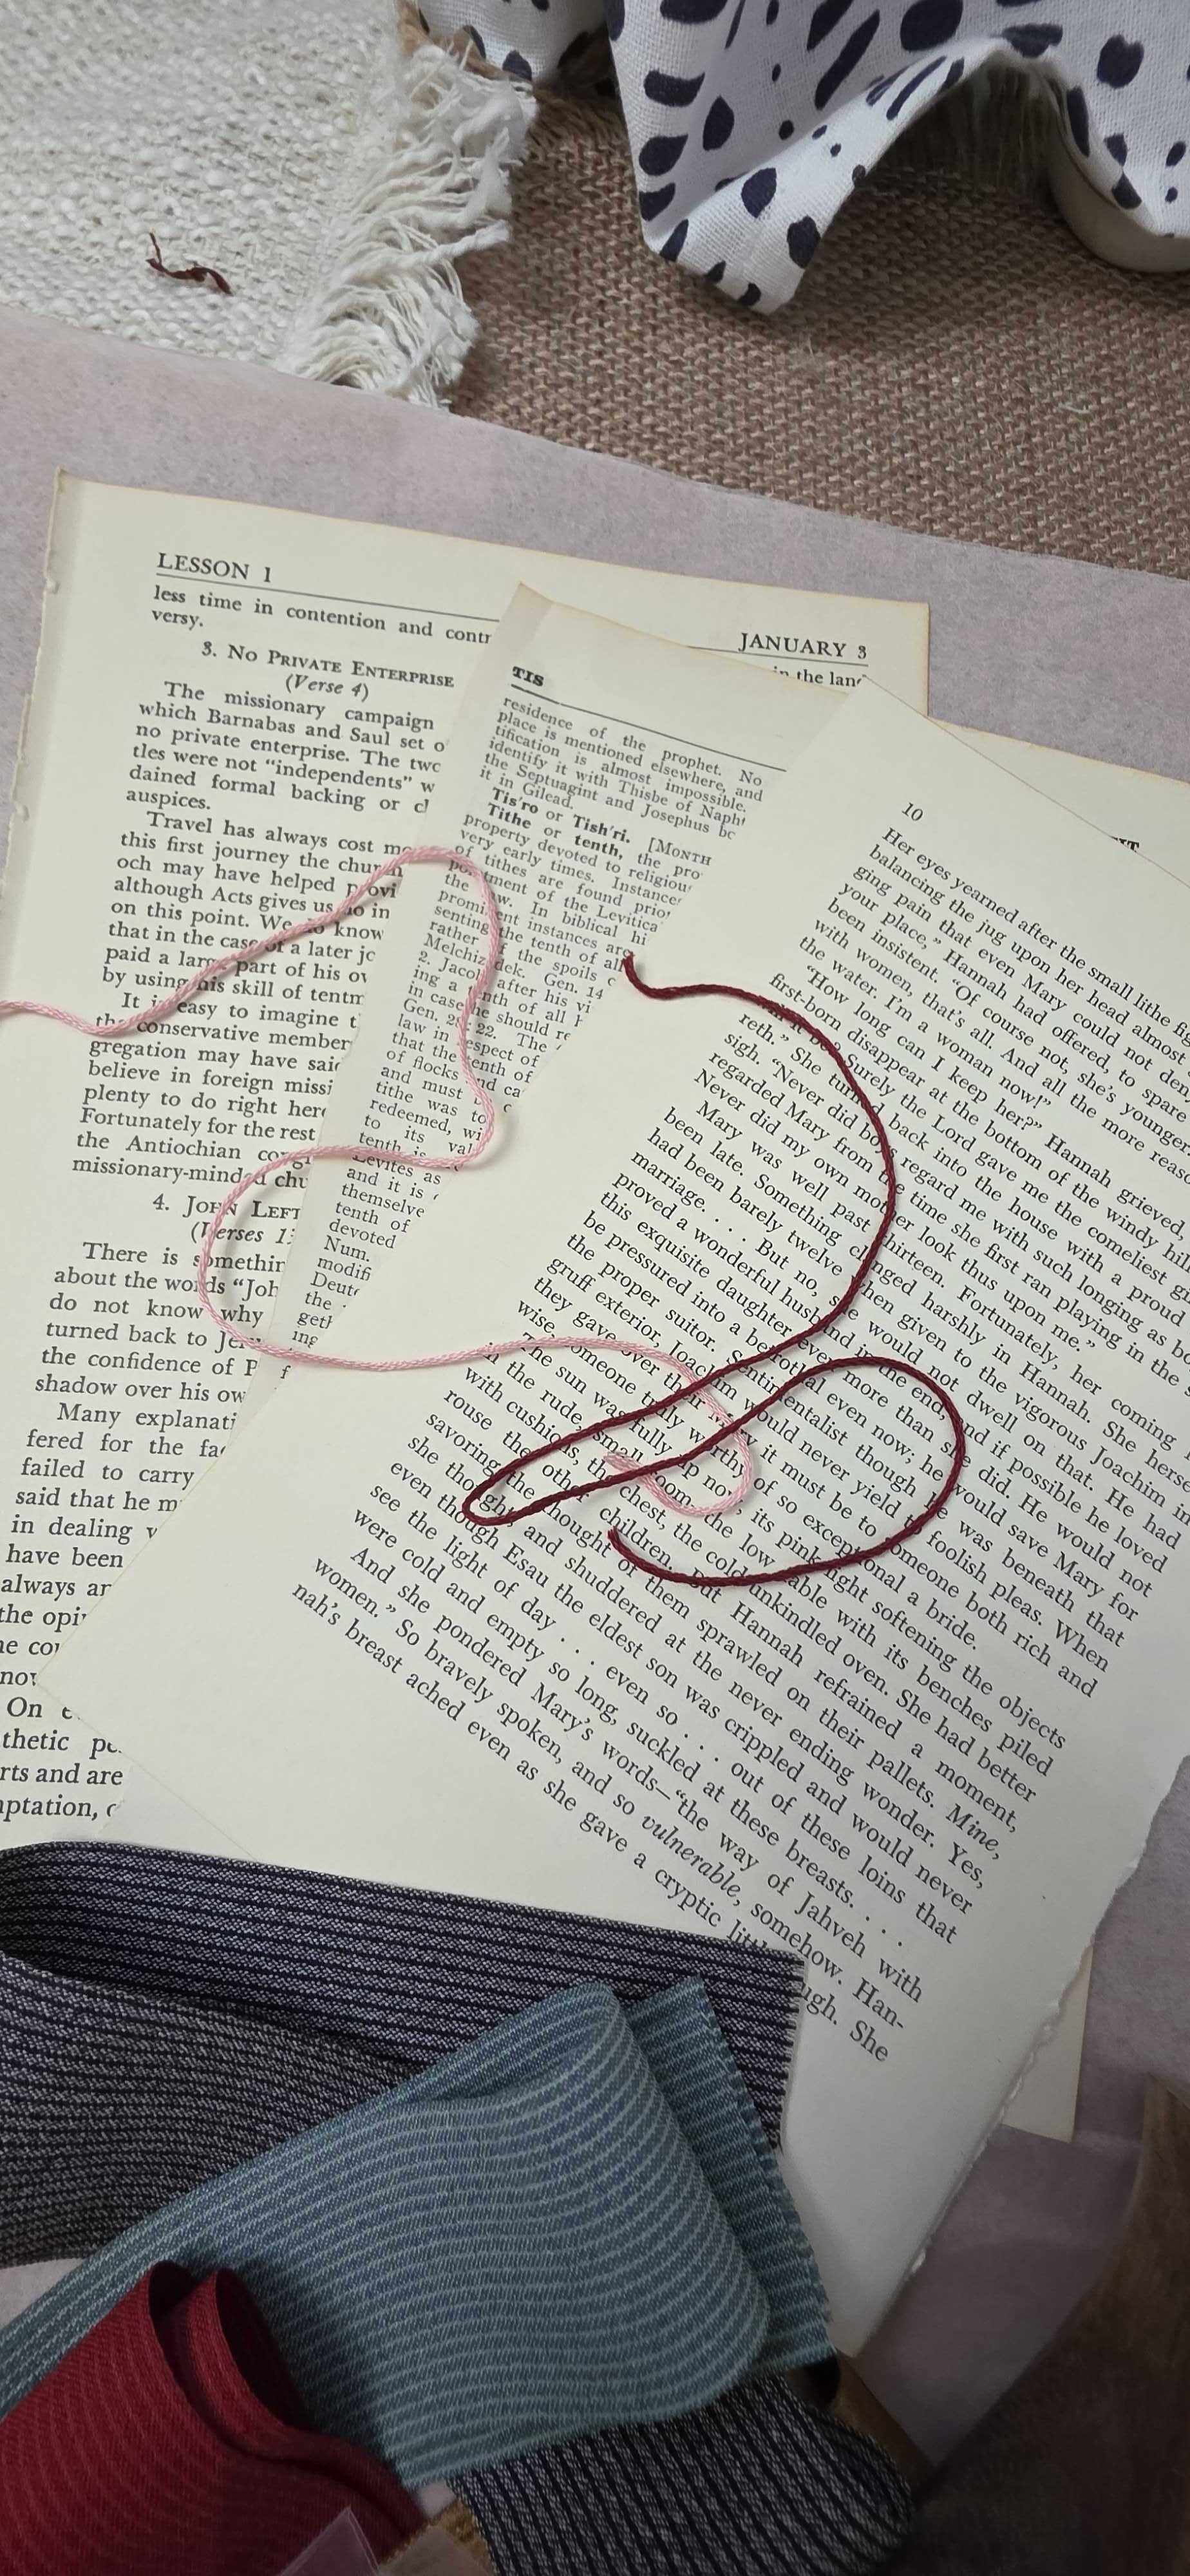 LESSON 1
less time in contention and contr
versy.
3. NO PRIVATE ENTERPRISE
(Verse 4)
The missionary campaign
which Barnabas and Saul set o
no private enterprise. The two
tles were not "independents" w
dained formal backing or cl
auspices.
Travel has always cost mo
this first journey the church
och may have helped provi
although Acts gives us no in
on this point. We do know
that in the case of a later jo
paid a large part of his ov
by using his skill of tentm
It is easy to imagine t
the conservative member
gregation may have said
believe in foreign missi
plenty to do right here
Fortunately for the rest
the Antiochian congr
missionary-minded chu
4. JOHN LEFT
(Verses 13
There is somethin
about the words "Joh
do not know why
turned back to Jer
the confidence of P
shadow over his ow
Many explanati
fered for the fac
failed to carry
said that he m
in dealing w
have been
always ar
the opi
now
On e
thetic
rts and are
mptation,
JANUARY 3
in the land
TIS
residence of the prophet. No
place is mentioned elsewhere, and
tification is almost impossible.
identify it with Thisbe of Napht
the Septuagint and Josephus
it in Gilead.
Tis'ro or Tish'ri. [MONTH
Tithe or tenth, the pro
property devoted to religious
very early times. Instances
of tithes are found prior
ointment of the Levitica
the law. In biblical hi
prominent instances are
senting the tenth of all
rather of the spoils
Melchizedek. Gen. 14
2. Jacob after his vi
ing a tenth of all h
in case he should re
Gen. 28:22. The
law in respect of
that the tenth of
of flocks and ca
and must
tithe was to
redeemed, wi
to its val
tenth is
Levites, as
and it is
themselve
tenth of
devoted
Num.
modifi
Deute
the
geth
ing
10
Her eyes yearned after the small lithe fig
balancing the jug upon her head almost
ging pain that even Mary could not deny
your place," Hannah had offered, to spare
been insistent. "Of course not, she's younger.
with women, that's all. And all the more reaso
the water. I'm a woman now!"
"How long can I keep her?" Hannah grieved,
first-born disappear at the bottom of the windy hill
Surely the Lord gave me the comeliest gi
reth." She turned back into the house with a proud
sigh. "Never did boys regard me with such longing as bo
regarded Mary from the time she first ran playing in the s
Never did my own mother look thus upon me."
Mary was well past thirteen. Fortunately, her coming
been late. Something changed harshly in Hannah. She herse
had been barely twelve when given to the vigorous Joachim in
marriage. . . But no, she would not dwell on that. He had
proved a wonderful husband in the end, and if possible he loved
this exquisite daughter even more than she did. He would not
be pressured into a betrothal even now; he would save Mary for
the proper suitor. Sentimentalist though he was beneath that
gruff exterior, Joachim would never yield to foolish pleas. When
they gave over their Mary it must be to someone both rich and
wise, someone truly worthy of so exceptional a bride.
The sun was fully up now, its pink light softening the objects
in the rude, small room: the low table with its benches piled
with cushions, the chest, the cold unkindled oven. She had better
rouse the other children. But Hannah refrained a moment,
savoring the thought of them sprawled on their pallets. Mine,
she thought, and shuddered at the never ending wonder. Yes,
even though Esau the eldest son was crippled and would never
see the light of day . . . even so . . . out of these loins that
were cold and empty so long, suckled at these breasts. . . .
And she pondered Mary's words—"the way of Jahveh with
women." So bravely spoken, and so vulnerable, somehow. Han-
nah's breast ached even as she gave a cryptic little laugh. She